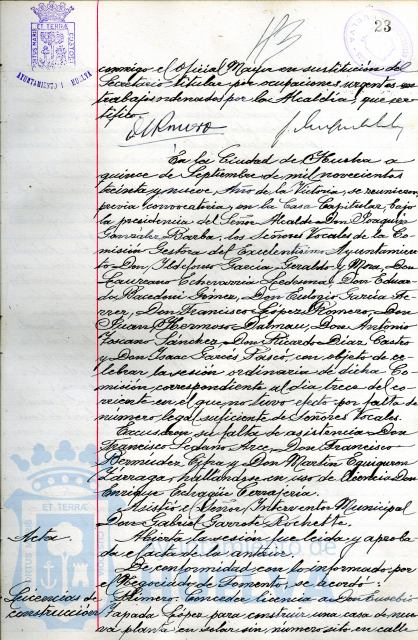 PORTUS MARIS ET TERRAE CUSTODIA
AYUNTAMIENTO HUELVA
23
conmigo el Oficial Mayor en sustitución del
Secretario titular por ocupaciones urgentes en
trabajos ordenados por la Alcaldía, que cer-
tifico.
En la Ciudad de Huelva a
quince de Septiembre de mil novecientos
treinta y nueve, Año de la Victoria, se reunieron
previa convocatoria, en la Casa Capitular, bajo
la presidencia del Señor Alcalde Don Joaquín
González Barba, los Señores Vocales de la Co-
misión Gestora del Excelentísimo Ayuntamien-
to Don Ildefonso García Geraldo y Mora, Don
Laureano Echevarría Ledesma, Don Eduar-
do Bacedoni Gómez, Don Eulogio García He-
rrer, Don Francisco López Romero, Don
Juan Hermoso Dalmau, Don Antonio
Toscano Sánchez, Don Ricardo Díaz Castro
y Don Isaac Garcés Tosco, con objeto de ce-
lebrar la sesión ordinaria de dicha Co-
misión correspondiente al día trece del co-
rriente en el que no tuvo efecto por falta de
número legal suficiente de Señores Vocales.
Excusaron su falta de asistencia Don
Francisco Arce, Don Francisco
Bermúdez Cifra y Don Martín Eguiguren
Larraga, hallándose en uso de licencia Don
Enrique Echagüe Cenajeria.
Asistió el Señor Interventor Municipal
Don Gabriel Garrote
Acta.
Abierta la sesión fue leída y aproba-
da el acta de la anterior.
De conformidad con lo informado por
el Negociado de Fomento, se acordó:
Licencias de
construcción
Primero: Conceder licencia a Don Eusebio
Zapada López para construir una casa de nue-
va planta en solar sin número sito en calle